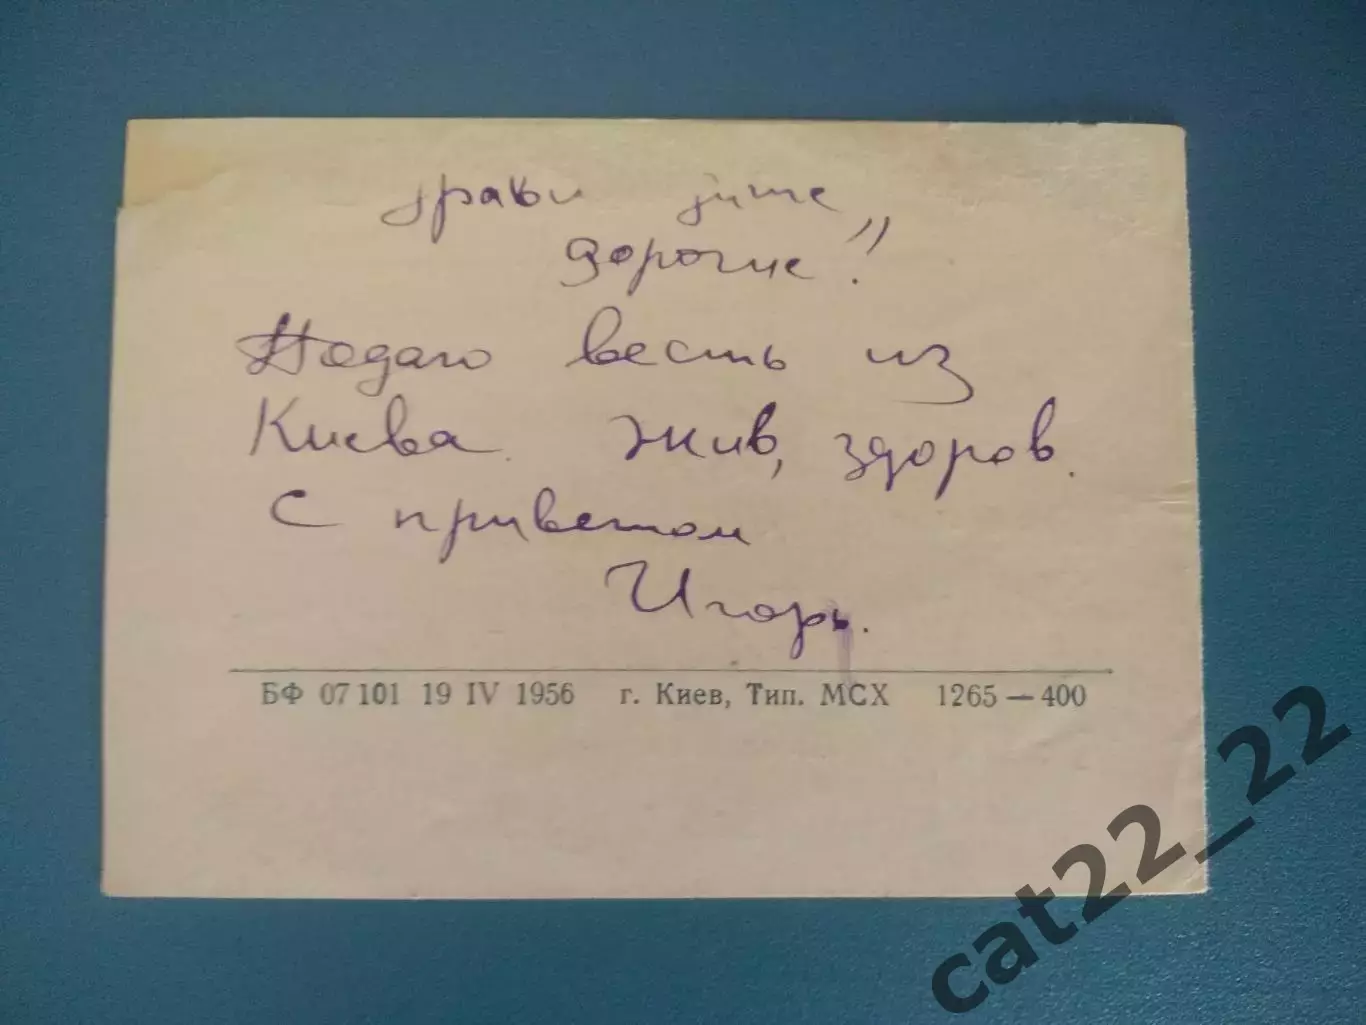 дорогие!
Подаю весть из
Киева. Жив, здоров.
С приветом
Игорь.
БФ 07101 19 IV 1956 г. Киев, Тип. МСХ 1265—400
cat22_22